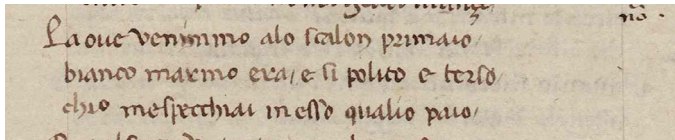 La oue venimmo alo scalon primaio/
bianco marmo era/ e si polito e terso
chio mespecchiai inesso qualio paio/